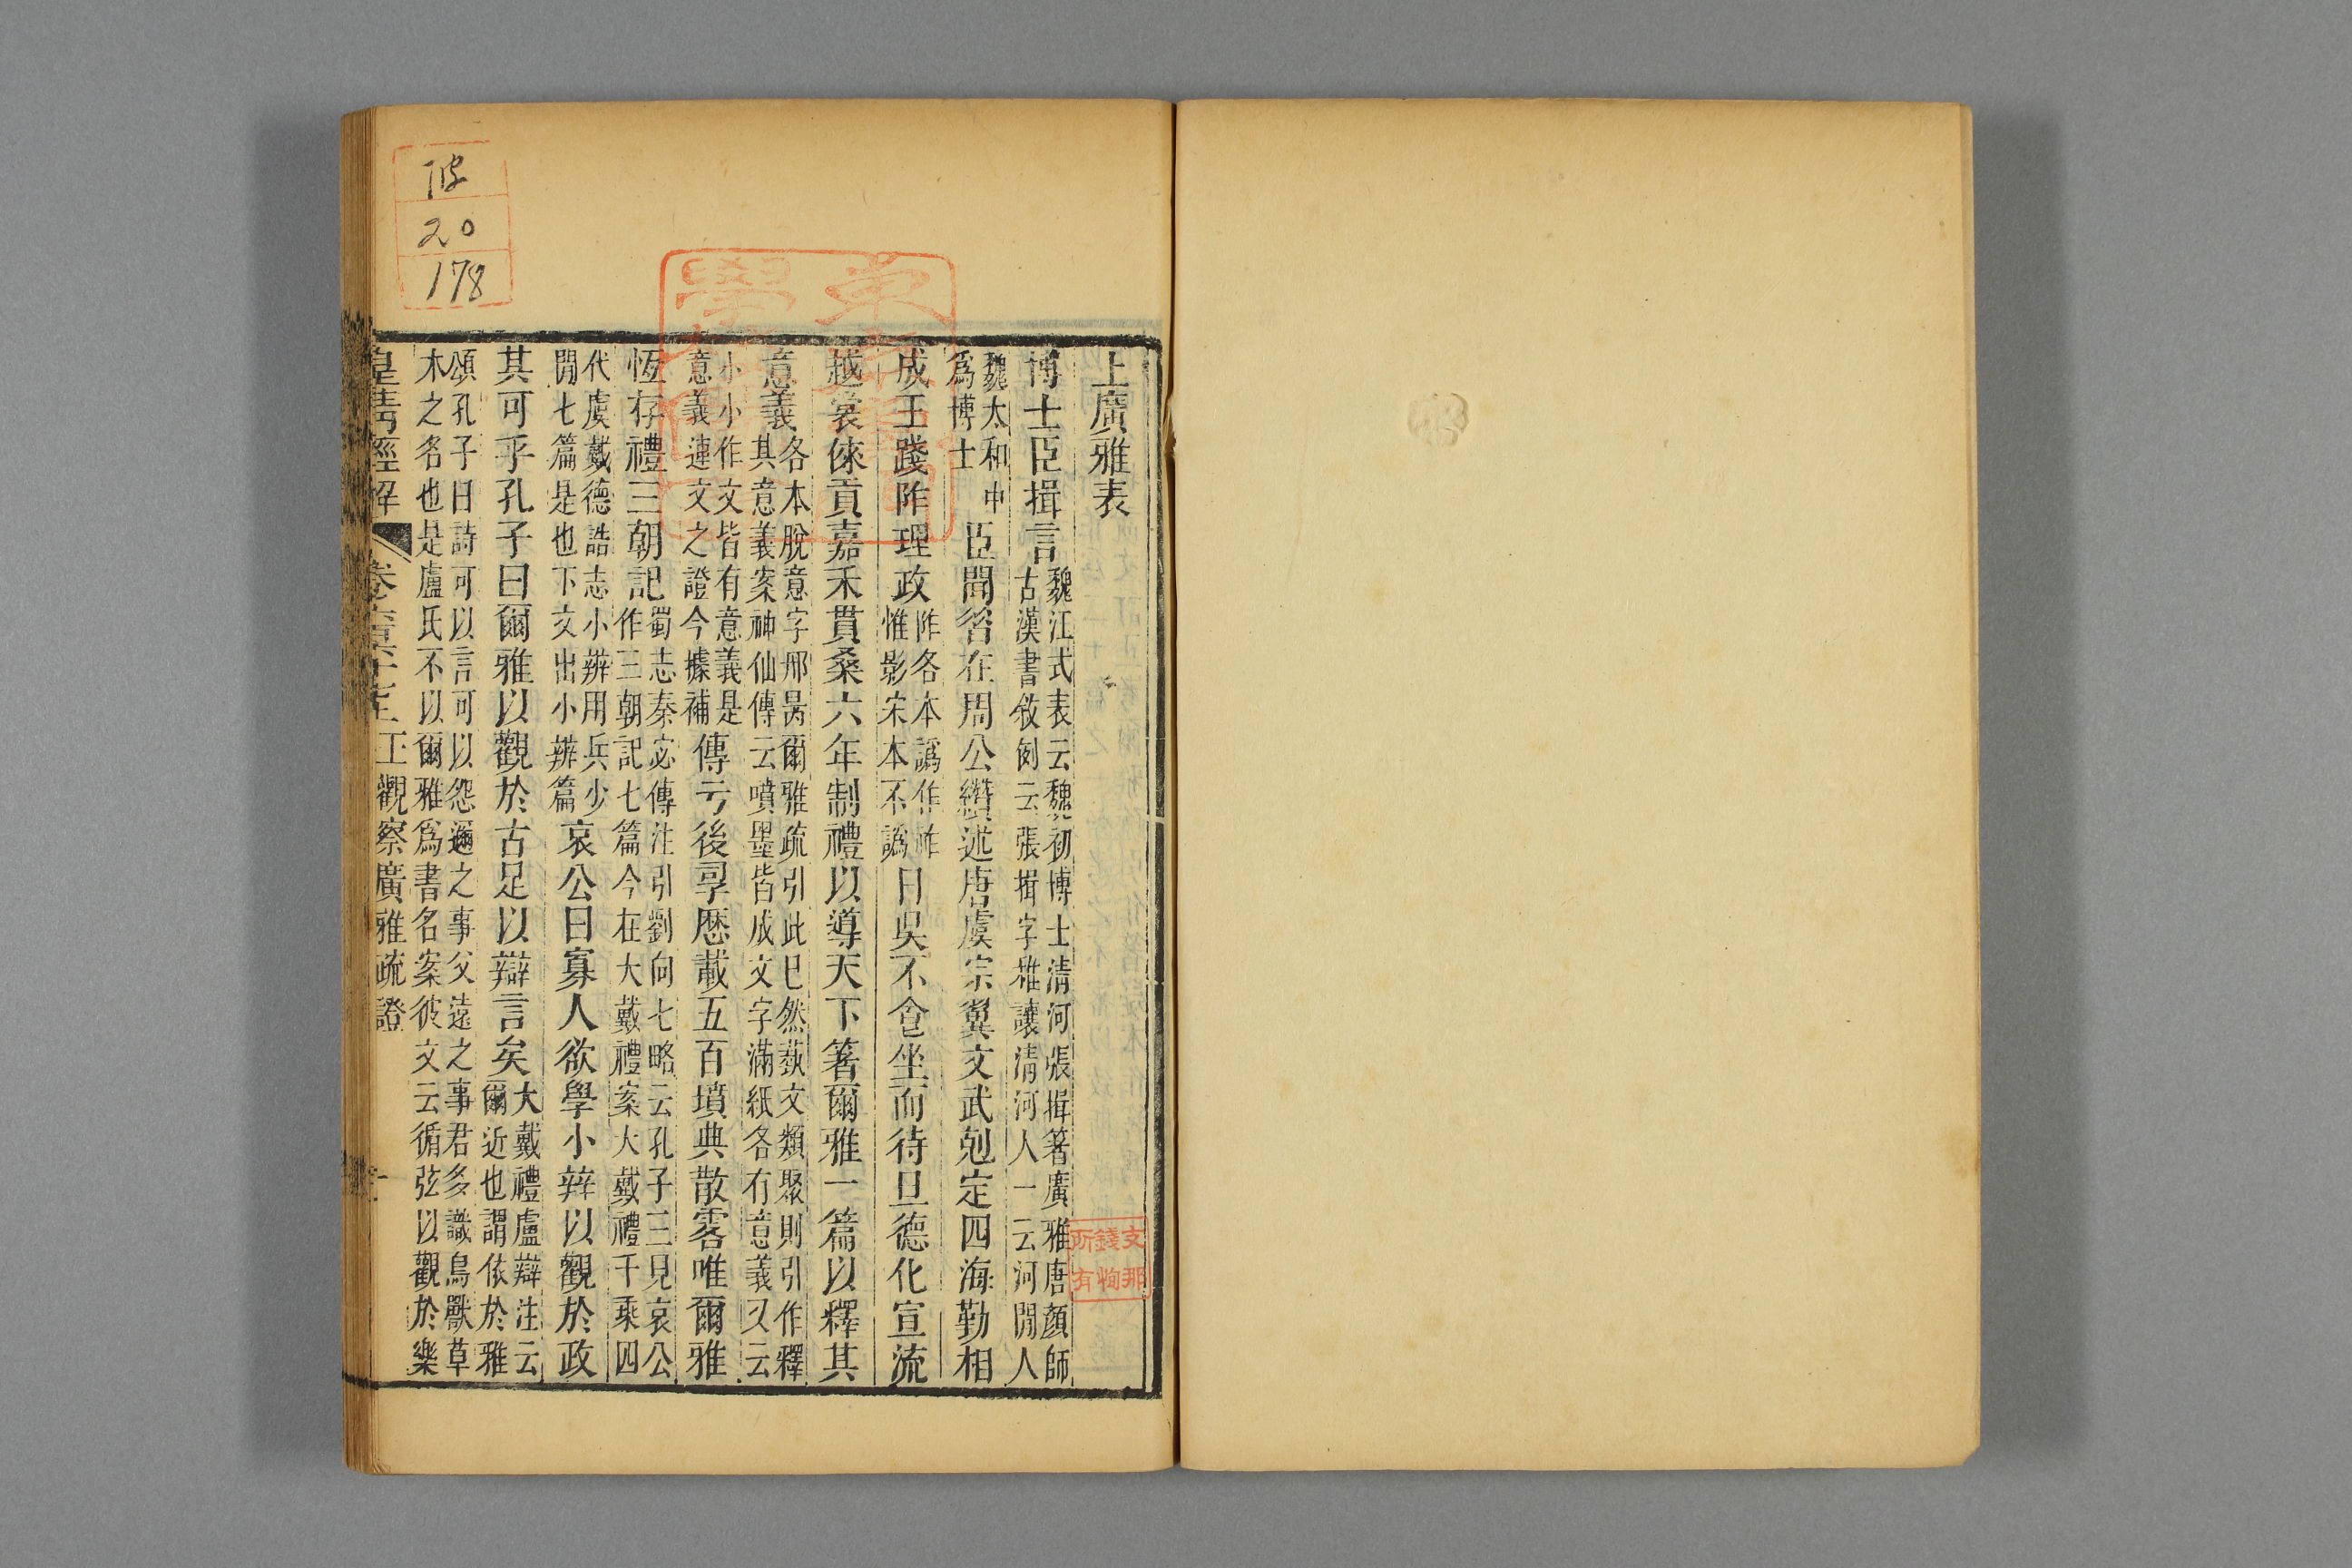 上廣雅表
博士臣揖言魏江式表云魏初博士清河張揖箸廣雅唐顏師
古漢書敘例云張揖字稚讓清河人一云河閒人
魏太和中
爲博士臣聞昝在周公纘述唐虞宗翼文武剋定四海勤相
成王踐阼理政阼各本譌作祚
惟影宋本不譌日昃不食坐而待旦德化宣流
越裳倈貢嘉禾貫桑六年制禮以導天下箸爾雅一篇以釋其
意義各本脫意字邢昺爾雅疏引此已然蓺文類聚則引作釋
其意義案神仙傳云噴墨皆成文字滿紙各有意義又云
小小作文皆有意義是
意義連文之證今據補傳亏後㝷歷載五百墳典散零唯爾雅
恆存禮三朝記蜀志秦宓傳注引劉向七略云孔子三見哀公
作三朝記七篇今在大戴禮案大戴禮千乘四
代虞戴德誥志小辨用兵少
閒七篇是也下文出小辨篇哀公曰寡人欲學小辯以觀於政
其可乎孔子曰爾雅以觀於古足以辯言矣大戴禮盧辯注云
爾近也謂依於雅
頌孔子曰詩可以言可以怨邇之事父遠之事君多識鳥獸草
木之名也是盧氏不以爾雅爲書名案彼文云循弦以觀於樂
皇清經解 卷六百六十七上 王觀察廣雅疏證 一
20
178
文那
錢恂
所有